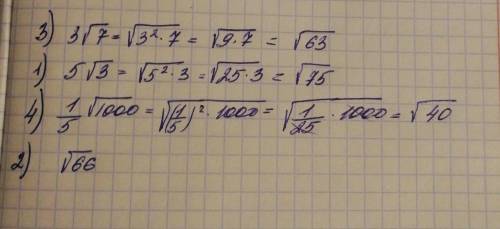 3) 3√7 = √3²·7 = √9·7 = √63
1) 5√3 = √5²·3 = √25·3 = √75
4) 1/5 √1000 = √(1/5)²·1000 = √1/25·1000 = √40
2) √66